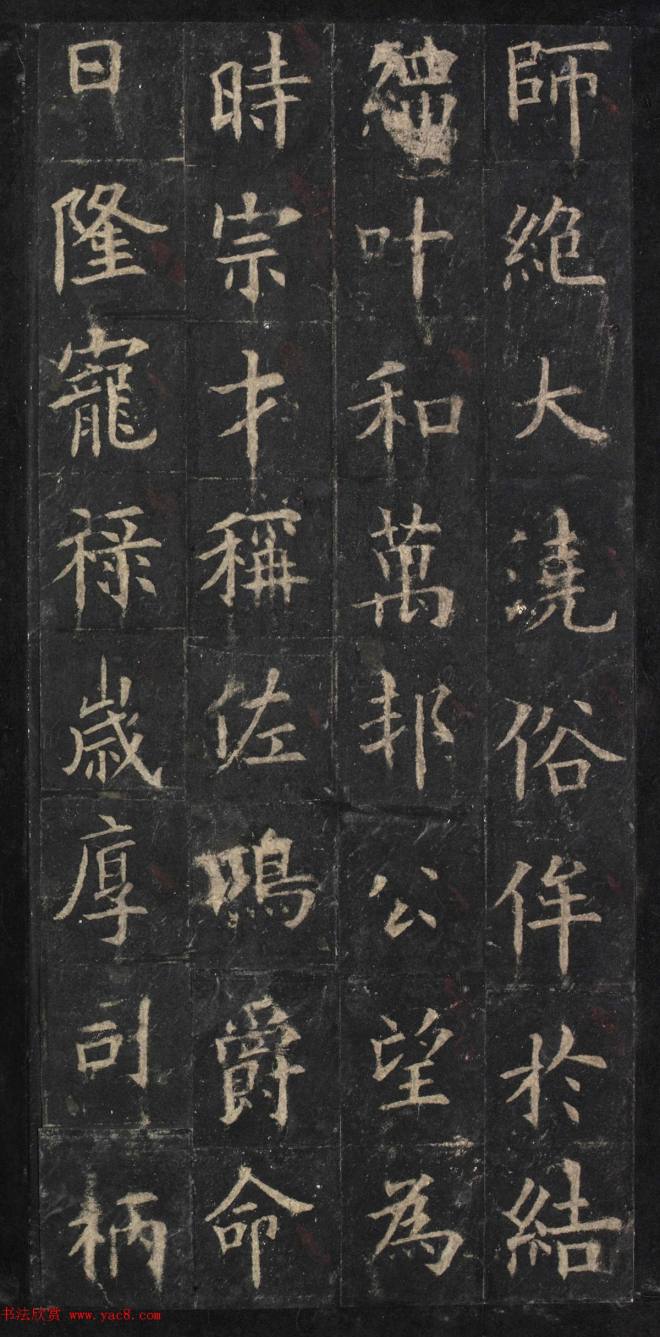 師絶大澆俗侔於結
繩叶和萬邦公望為
時宗才稱佐鳴爵命
日隆寵禄歲厚司柄
书法欣赏 www.yac8.com